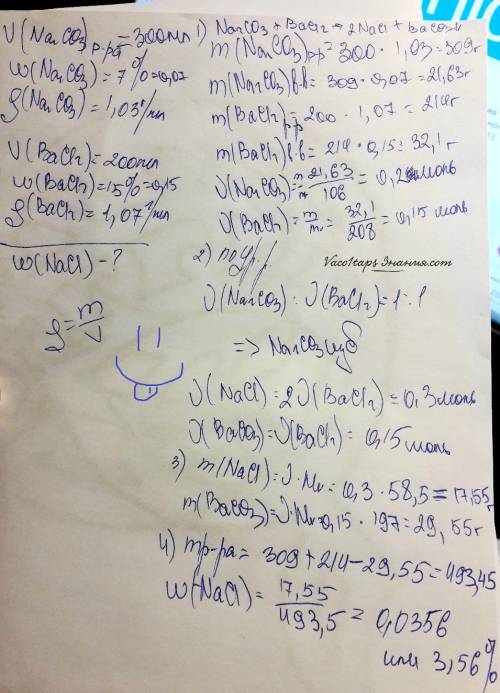 V(Na₂CO₃)р-ра = 300мл
w(Na₂CO₃) = 7% = 0,07
ρ(Na₂CO₃) = 1,03г/мл
V(BaCl₂) = 200мл
w(BaCl₂) = 15% = 0,15
ρ(BaCl₂) = 1,07г/мл
w(NaCl) - ?
ρ = m/V
1) Na₂CO₃ + BaCl₂ → 2NaCl + BaCO₃↓
m(Na₂CO₃)р-р = 300 · 1,03 = 309г
m(Na₂CO₃)в-в = 309 · 0,07 = 21,63г
m(BaCl₂)р-р = 200 · 1,07 = 214г
m(BaCl₂)в-в = 214 · 0,15 = 32,1г
ν(Na₂CO₃) = m/m = 21,63/106 = 0,2 моль
ν(BaCl₂) = m/m = 32,1/208 = 0,15 моль
2) по ур.р.
Vaco1taps Знания.com
ν(Na₂CO₃) : ν(BaCl₂) = 1 : 1
=> Na₂CO₃ изб
ν(NaCl) = 2ν(BaCl₂) = 0,3моль
ν(BaCO₃) = ν(BaCl₂) = 0,15моль
3) m(NaCl) = ν · Mr = 0,3 · 58,5 = 17,55г
m(BaCO₃) = ν · Mr = 0,15 · 197 = 29,55г
4) mр-ра = 309 + 214 - 29,55 = 493,45
w(NaCl) = 17,55/493,5 = 0,0356
или 3,56%